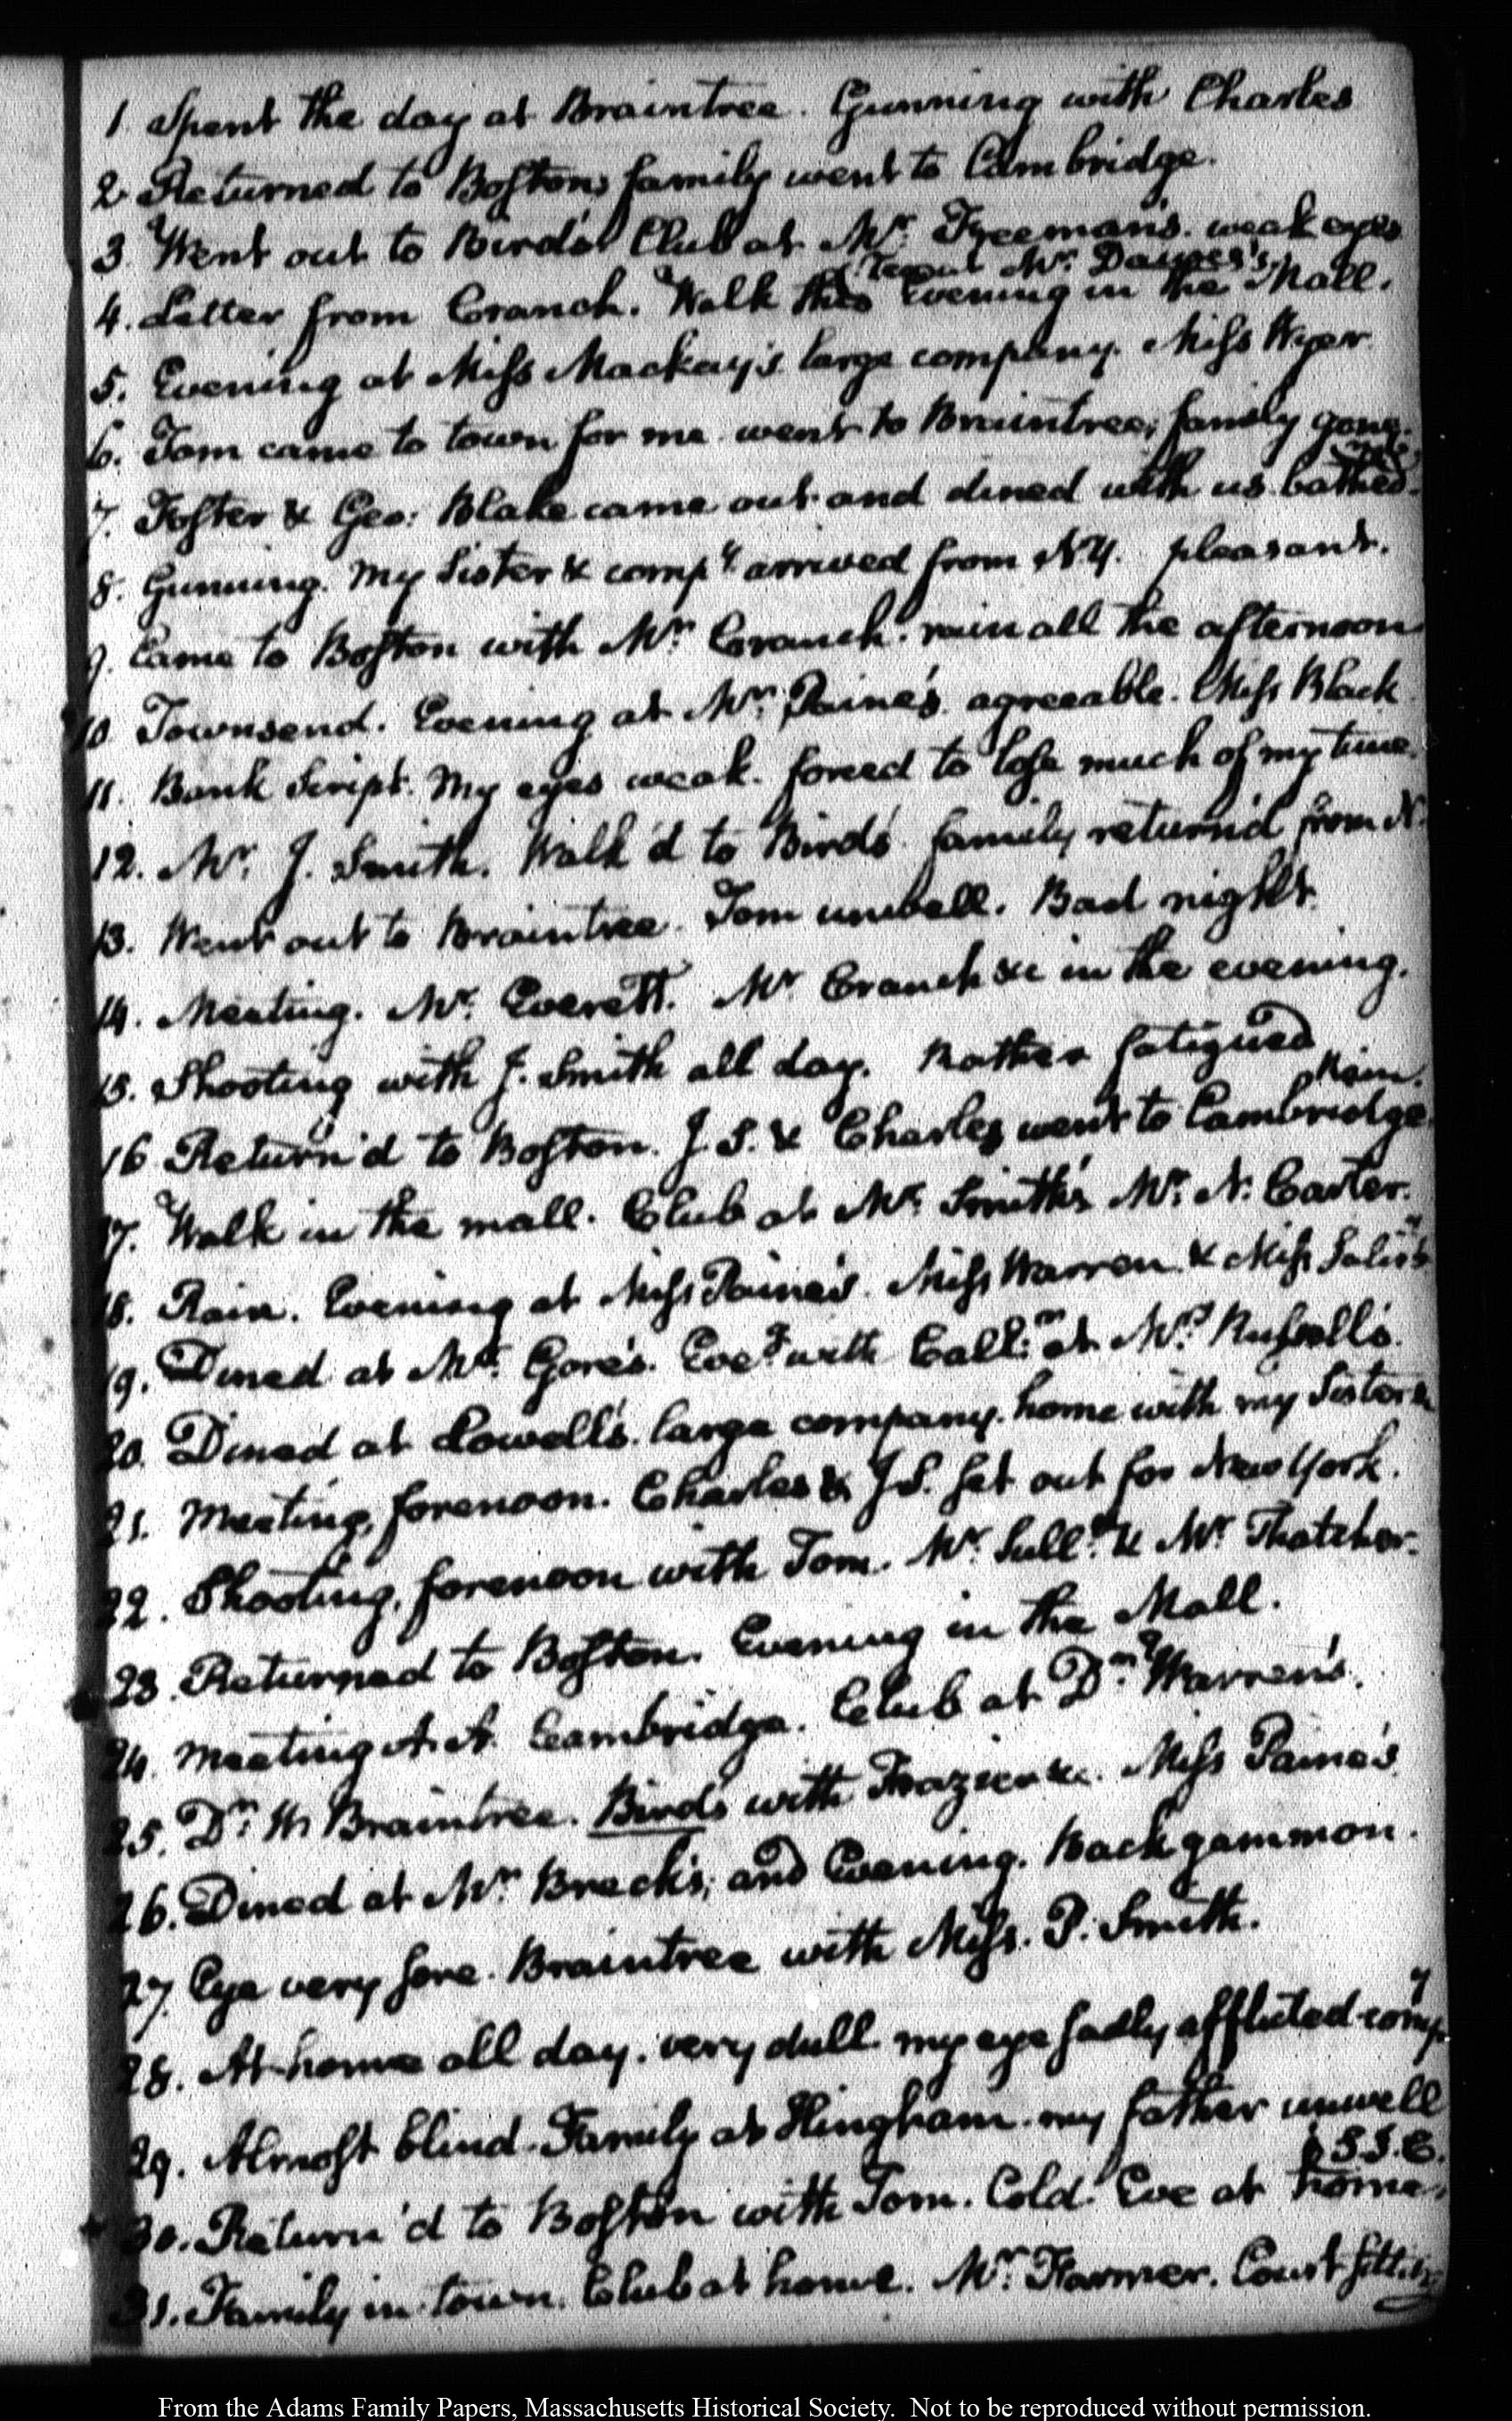 1. Spent the day at Braintree. Gunning with Charles
2 Returned to Boston, family went to Cambridge.
3 Went out to Bird's. Club at Mr. Freeman's. weak eyes
Mr. Dawes's.
4. Letter from Cranch. Walk this Evening in the Mall.
5. Evening at Miss Mackay's large company. Miss Wyer
6. Tom came to town for me. went to Braintree; family gone.
7. Foster & Geo: Blake came out and dined with us. bathed.
8. Gunning. My Sister & compy. arrived from N.Y. pleasant.
9. Came to Boston with Mr. Cranch. rain all the afternoon
10 Townsend. Evening at Mr. Paine's. agreeable. Miss Black
11. Bank Script. My eyes weak. forced to lose much of my time.
12. Mr. J. Smith. Walk'd to Bird's. family return'd from N.
13. Went out to Braintree. Tom unwell. Bad night.
14. Meeting. Mr. Everett. Mr Cranch &c in the evening.
15. Shooting with J. Smith all day. Rather fatigued
Rain.
16 Return'd to Boston. J. S. & Charles went to Cambridge.
17. Walk in the mall. Club at Mr. Smith's Mr. N. Carter.
18. Rain. Evening at Miss Paine's. Miss Warren & Miss
19. Dined at Mr. Gore's. Eveg. with Calln: at Mrs. Russell's.
20. Dined at Lowell's. large company. home with my Sister &c
21. Meeting, forenoon. Charles & J S. set out for New York.
22. Shooting, forenoon with Tom. Mr. Sulln. & Mr Thatcher.
23. Returned to Boston. Evening in the Mall.
24. Meeting A. A. Cambridge. Club at Dr. Warren's.
25. Dr. W. Braintree. Bird's with Frazier &c. Miss Paine's
26. Dined at Mr. Breck's; and Evening. Back gammon.
27 Eye very sore. Braintree with Miss. P. Smith.
28. At home all day. very dull. my eye sadly afflicted. compy
29. Almost blind. Family at Hingham. my father unwell
S. J. C.
30. Return'd to Boston with Tom. Cold. Eve at home.
31. Family in town. Club at home. Mr. Farmer. Court sitting
From the Adams Family Papers, Massachusetts Historical Society. Not to be reproduced without permission.